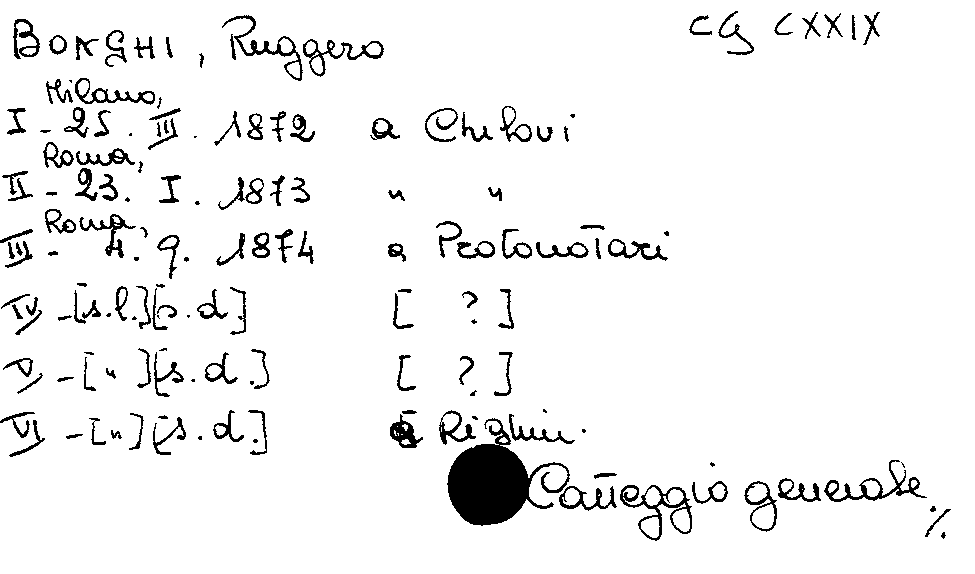 BONGHI, Ruggero CG CXXIX
Milano,
I - 25. III. 1872 a Chilovi
Roma,
II - 23. I. 1873 " "
Roma,
III - 4. 9. 1874 a Protonotari
IV - [s.l.][s.d] [ ? ]
V - [ " ][s.d.] [ ? ]
VI - [ " ][s.d.] a Righini.
Carteggio generale
./.